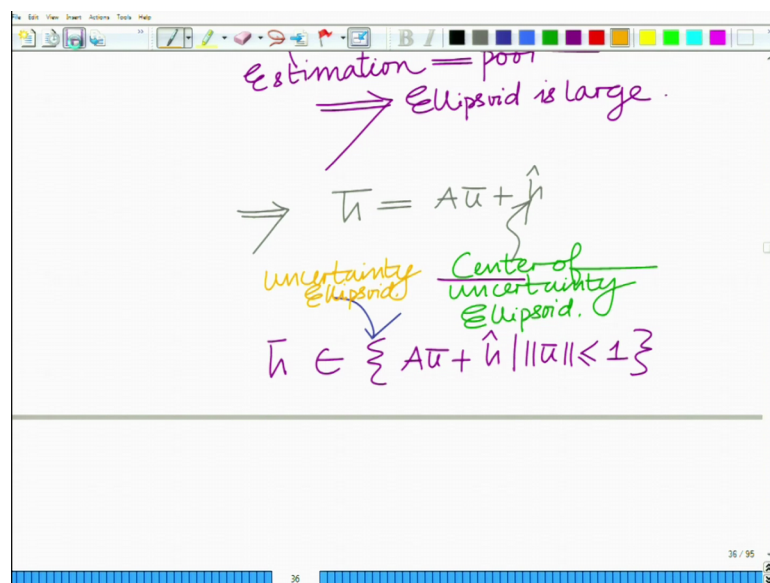 File Edit View Insert Actions Tools Help
B I
Estimation = poor
⟹ Ellipsoid is large.
⟹ h̅ = Au̅ + ĥ
Uncertainty Ellipsoid.
Center of uncertainty Ellipsoid.
h̅ ∈ { Au̅ + ĥ | ||u̅|| ≤ 1 }
36 / 95
36